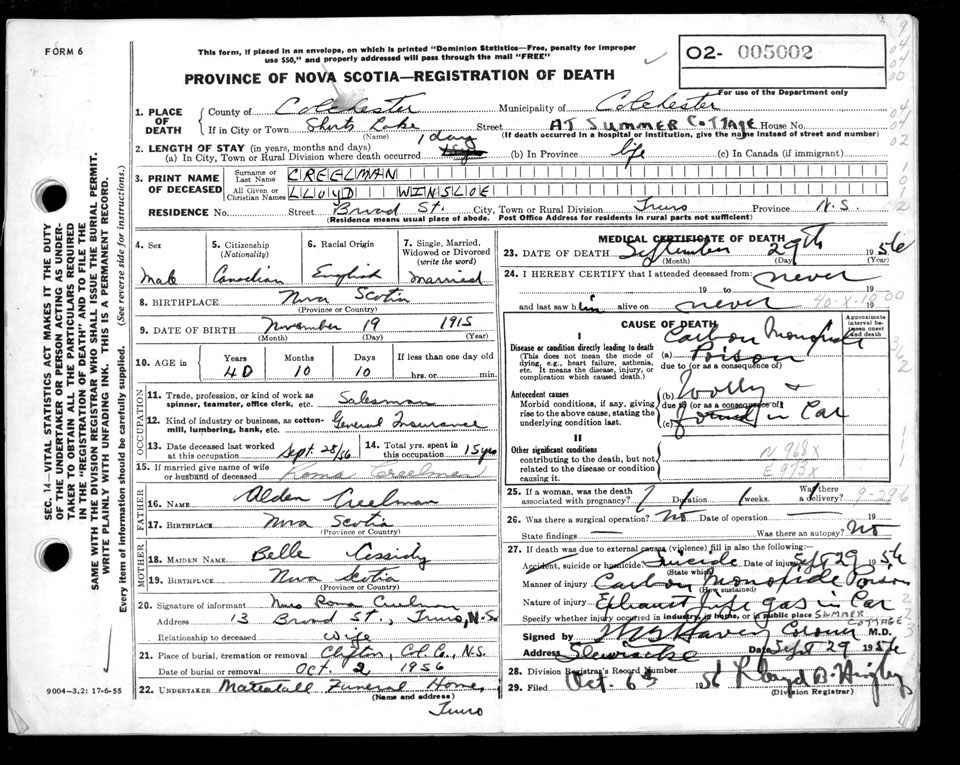 FORM 6
This form, if placed in an envelope, on which is printed "Dominion Statistics—Free, penalty for improper
use $50," and properly addressed will pass through the mail "FREE"
PROVINCE OF NOVA SCOTIA—REGISTRATION OF DEATH
O2- 005002
For use of the Department only
SEC. 14—VITAL STATISTICS ACT MAKES IT THE DUTY
OF THE UNDERTAKER OR PERSON ACTING AS UNDER-
TAKER TO OBTAIN ALL THE PARTICULARS REQUIRED
IN THE "REGISTRATION OF DEATH" AND TO FILE THE
SAME WITH THE DIVISION REGISTRAR WHO SHALL ISSUE THE BURIAL PERMIT.
WRITE PLAINLY WITH UNFADING INK. THIS IS A PERMANENT RECORD.
Every item of information should be carefully supplied. (See reverse side for instructions.)
1. PLACE OF DEATH County of Colchester Municipality of Colchester
If in City or Town Shorts Lake Street AT SUMMER COTTAGE House No.
(Name) (If death occurred in a hospital or institution, give the name instead of street and number)
2. LENGTH OF STAY (in years, months and days)
(a) In City, Town or Rural Division where death occurred 1 day (b) In Province life (c) In Canada (if immigrant)
3. PRINT NAME OF DECEASED Surname or Last Name CREELMAN
All Given or Christian Names LLOYD WINSLOE
RESIDENCE No. Street Broad St. City, Town or Rural Division Truro Province N.S.
(Residence means usual place of abode. Post Office Address for residents in rural parts not sufficient)
4. Sex Male
5. Citizenship (Nationality) Canadian
6. Racial Origin English
7. Single, Married, Widowed or Divorced (write the word) married
8. BIRTHPLACE Nova Scotia
(Province or Country)
9. DATE OF BIRTH November 19 1915
(Month) (Day) (Year)
10. AGE in Years Months Days If less than one day old
40 10 10 hrs. or min.
OCCUPATION
11. Trade, profession, or kind of work as
spinner, teamster, office clerk, etc. Salesman
12. Kind of industry or business, as cotton-
mill, lumbering, bank, etc. General Insurance
13. Date deceased last worked
at this occupation Sept. 28/56
14. Total yrs. spent in
this occupation 15 yrs
15. If married give name of wife
or husband of deceased Rona Creelman
FATHER
16. NAME Alden Creelman
17. BIRTHPLACE Nova Scotia
(Province or Country)
MOTHER
18. MAIDEN NAME Belle Cessidy
19. BIRTHPLACE Nova Scotia
(Province or Country)
20. Signature of informant Mrs Rona Creelman
Address 13 Broad St., Truro, N.S.
Relationship to deceased wife
21. Place of burial, cremation or removal Clifton, Col. Co., N.S.
Date of burial or removal Oct. 2 1956
22. UNDERTAKER Mattatall Funeral Home,
(Name and address)
Truro
9004-3,2: 17-6-55
MEDICAL CERTIFICATE OF DEATH
23. DATE OF DEATH September 29th 1956
(Month) (Day) (Year)
24. I HEREBY CERTIFY that I attended deceased from never
19 to 19
and last saw him alive on never 19
40-X-10-00
CAUSE OF DEATH
Approximate interval between onset and death
I
Disease or condition directly leading to death
(This does not mean the mode of
dying, e.g., heart failure, asthenia,
etc. It means the disease, injury, or
complication which caused death.)
(a) Carbon Monoxide Poison
due to (or as a consequence of)
Antecedent causes
Morbid conditions, if any, giving
rise to the above cause, stating the
underlying condition last.
(b) Worry &
due to (or as a consequence of)
(c) found in Car
II
Other significant conditions
contributing to the death, but not
related to the disease or condition
causing it.
N 968x
E 973x
25. If a woman, was the death
associated with pregnancy? Duration weeks. Was there a delivery? 9-296
26. Was there a surgical operation? No Date of operation 19
State findings Was there an autopsy? No
27. If death was due to external causes (violence) fill in also the following:
Accident, suicide or homicide. Suicide Date of injury Sept 29 1956
(State which)
Manner of injury Carbon Monoxide Poison
(How sustained)
Nature of injury Exhaust pipe gas in Car
Specify whether injury occurred in industry, in home, or in public place SUMMER COTTAGE
Signed by Coroner M.D.
Address Stewiacke Date Sept 29 1956
28. Division Registrar's Record Number
29. Filed Oct 6th 1956 Lloyd B.
(Division Registrar)